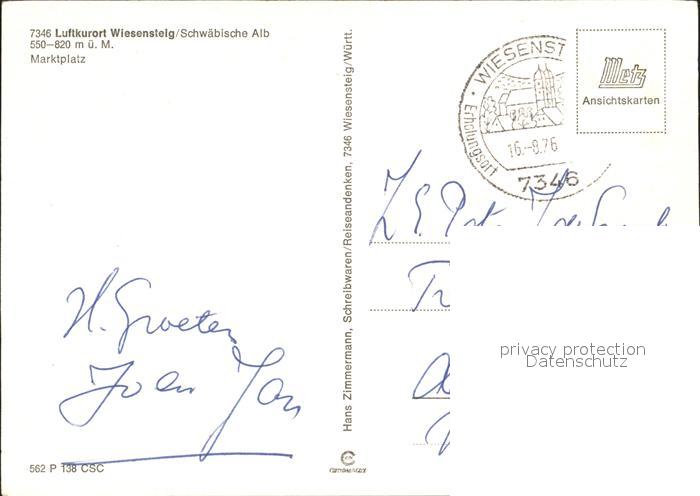 7346 Luftkurort Wiesensteig/Schwäbische Alb
550–820 m ü. M.
Marktplatz
H. Groeten
Jan
562 P 138 CSC
Hans Zimmermann, Schreibwaren/Reiseandenken, 7346 Wiesensteig/Württ.
WIESENST
Erholungsort
16.-8.76
7346
Metz
Ansichtskarten
privacy protection
Datenschutz